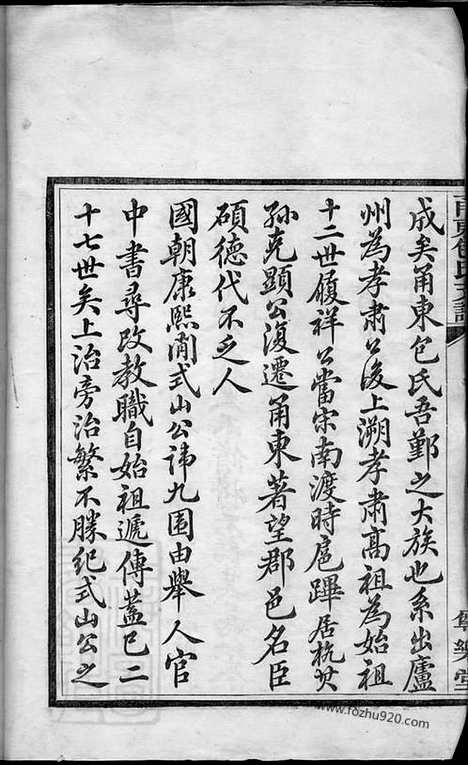 甬東包氏支譜
成矣甬東包氏吾鄞之大族也系出廬
州為孝肅公後上溯孝肅高祖為始祖
十二世履祥公當宋南渡時扈蹕居杭其
孫克顯公復遷甬東著望郡邑名臣
碩德代不乏人
國朝康熙甭式山公諱九囿由舉人官
中書尋改教職自始祖遞傳蓋已二
十七世矣上治旁治繁不勝紀式山公之
樂堂
www.fozhu920.com